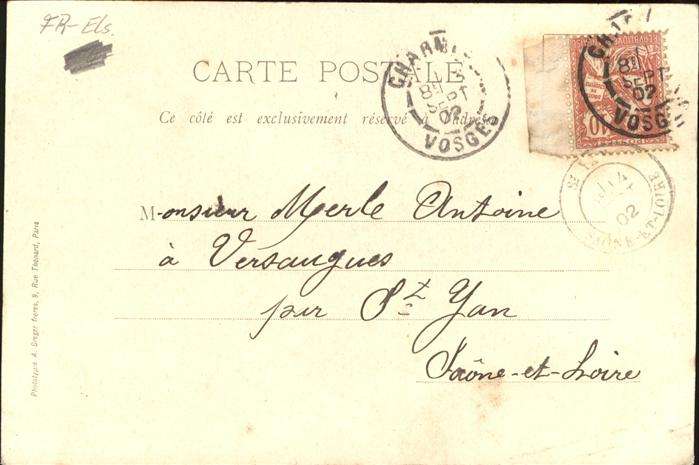 FR-Els.
CARTE POSTALE
Ce côté est exclusivement réservé à l'adresse
CHARMES
SEPT
02
VOSGES
SEPT
02
VOSGES
10
02
SAONE-ET-LOIRE
Monsieur Merle Antoine
à Versaugues
par St Yan
Saône-et-Loire
Phototypie A. Breger frères, 9, Rue Thénard, Paris